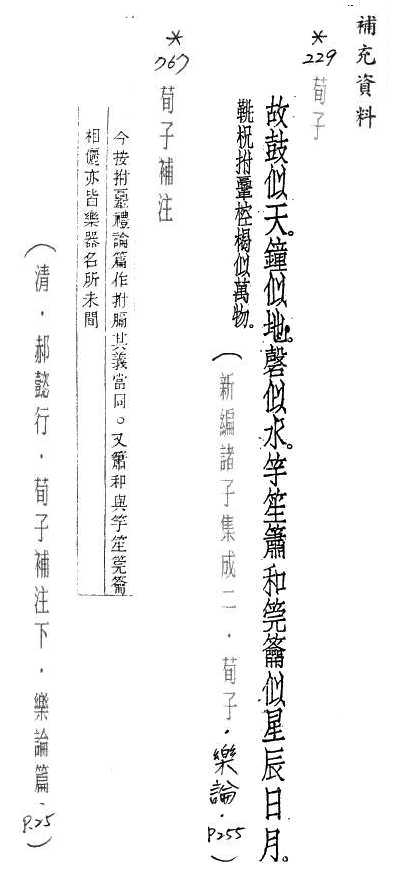 補充資料
*
229
荀子
故鼓似天。鐘似地。磬似水。竽笙簫和筦籥似星辰日月。
鞉柷拊鞷椌楬似萬物。
(新編諸子集成二．荀子．樂論．P255)
*
767
荀子補注
今按拊鞷禮論篇作拊膈其義當同。又簫和與竽笙筦籥
相儷亦皆樂器名所未聞
(清．郝懿行．荀子補注下．樂論篇．P.25)